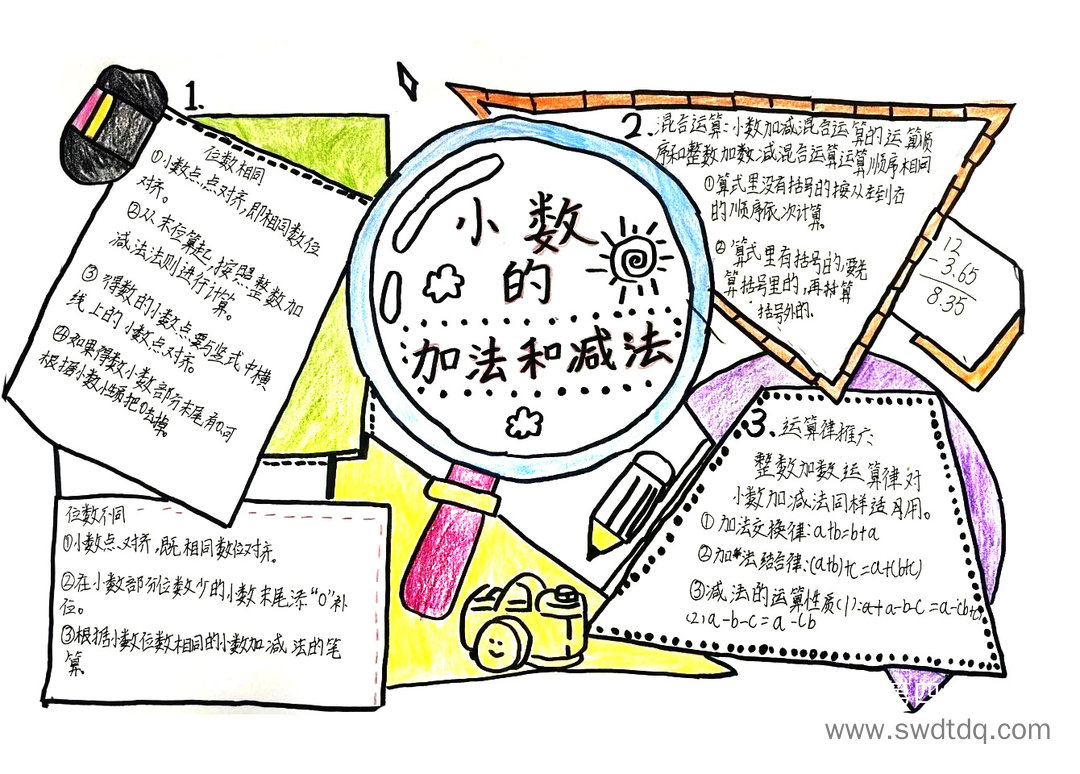 小数
的
加法和减法
1.
位数相同
①小数点,点对齐,即相同数位
对齐。
②从末位算起,按照整数加
减法法则进行计算。
③得数的小数点要与竖式中横
线上的小数点对齐。
④如果得数小数部分末尾有0,可
根据小数小频把0去掉。
位数不同
①小数点对齐,既相同数位对齐。
②在小数部分位数少的小数末尾添"0"补
位。
③根据小数位数相同的小数加减法的笔
算。
2.混合运算:小数加减混合运算的运算顺
序和整数加数减混合运算运算顺序相同
①算式里没有括号的按从左到右
的顺序依次计算。
②算式里有括号的,要先
算括号里的,再算
括号外的。
12
-3.65
8.35
3.运算律推广
整数加数运算律对
小数加减法同样适用。
①加法交换律:a+b=b+a
②加法结合律:(a+b)+c=a+(b+c)
③减法的运算性质(1):a+a-b-c=a-(b+c)
(2)a-b-c=a-(b
www.swdtdq.com